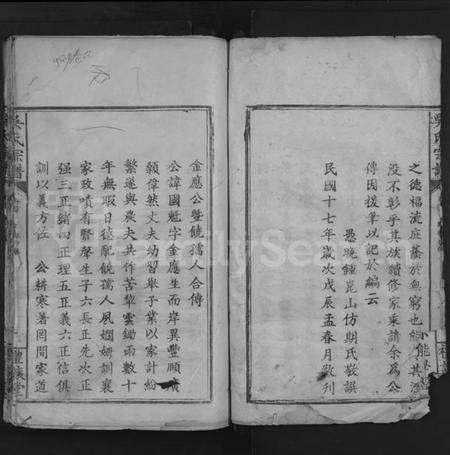 之德福流庥蔭於無窮也
没不彰乎其族續修家乘請余為公
傳因援筆以記於編云
愚晚鍾崑山仿期氏敬譔
民國十七年歲次戊辰孟春月敬刋
吳氏宗譜
金應公暨饒孺人合傳
公諱國魁字金應生而岸異豐頤廣
額偉然丈夫幼習舉子業以家計紛
繁遂與農夫共作苦犂雲鋤雨數十
年無暇日德配饒孺人夙嫻姆訓襄
家政嘖有賢聲生子六長正先次正
强三正緒四正理五正義六正信俱
訓以義方任公耕寒暑罔間家道
吳氏宗譜
FamilySearch